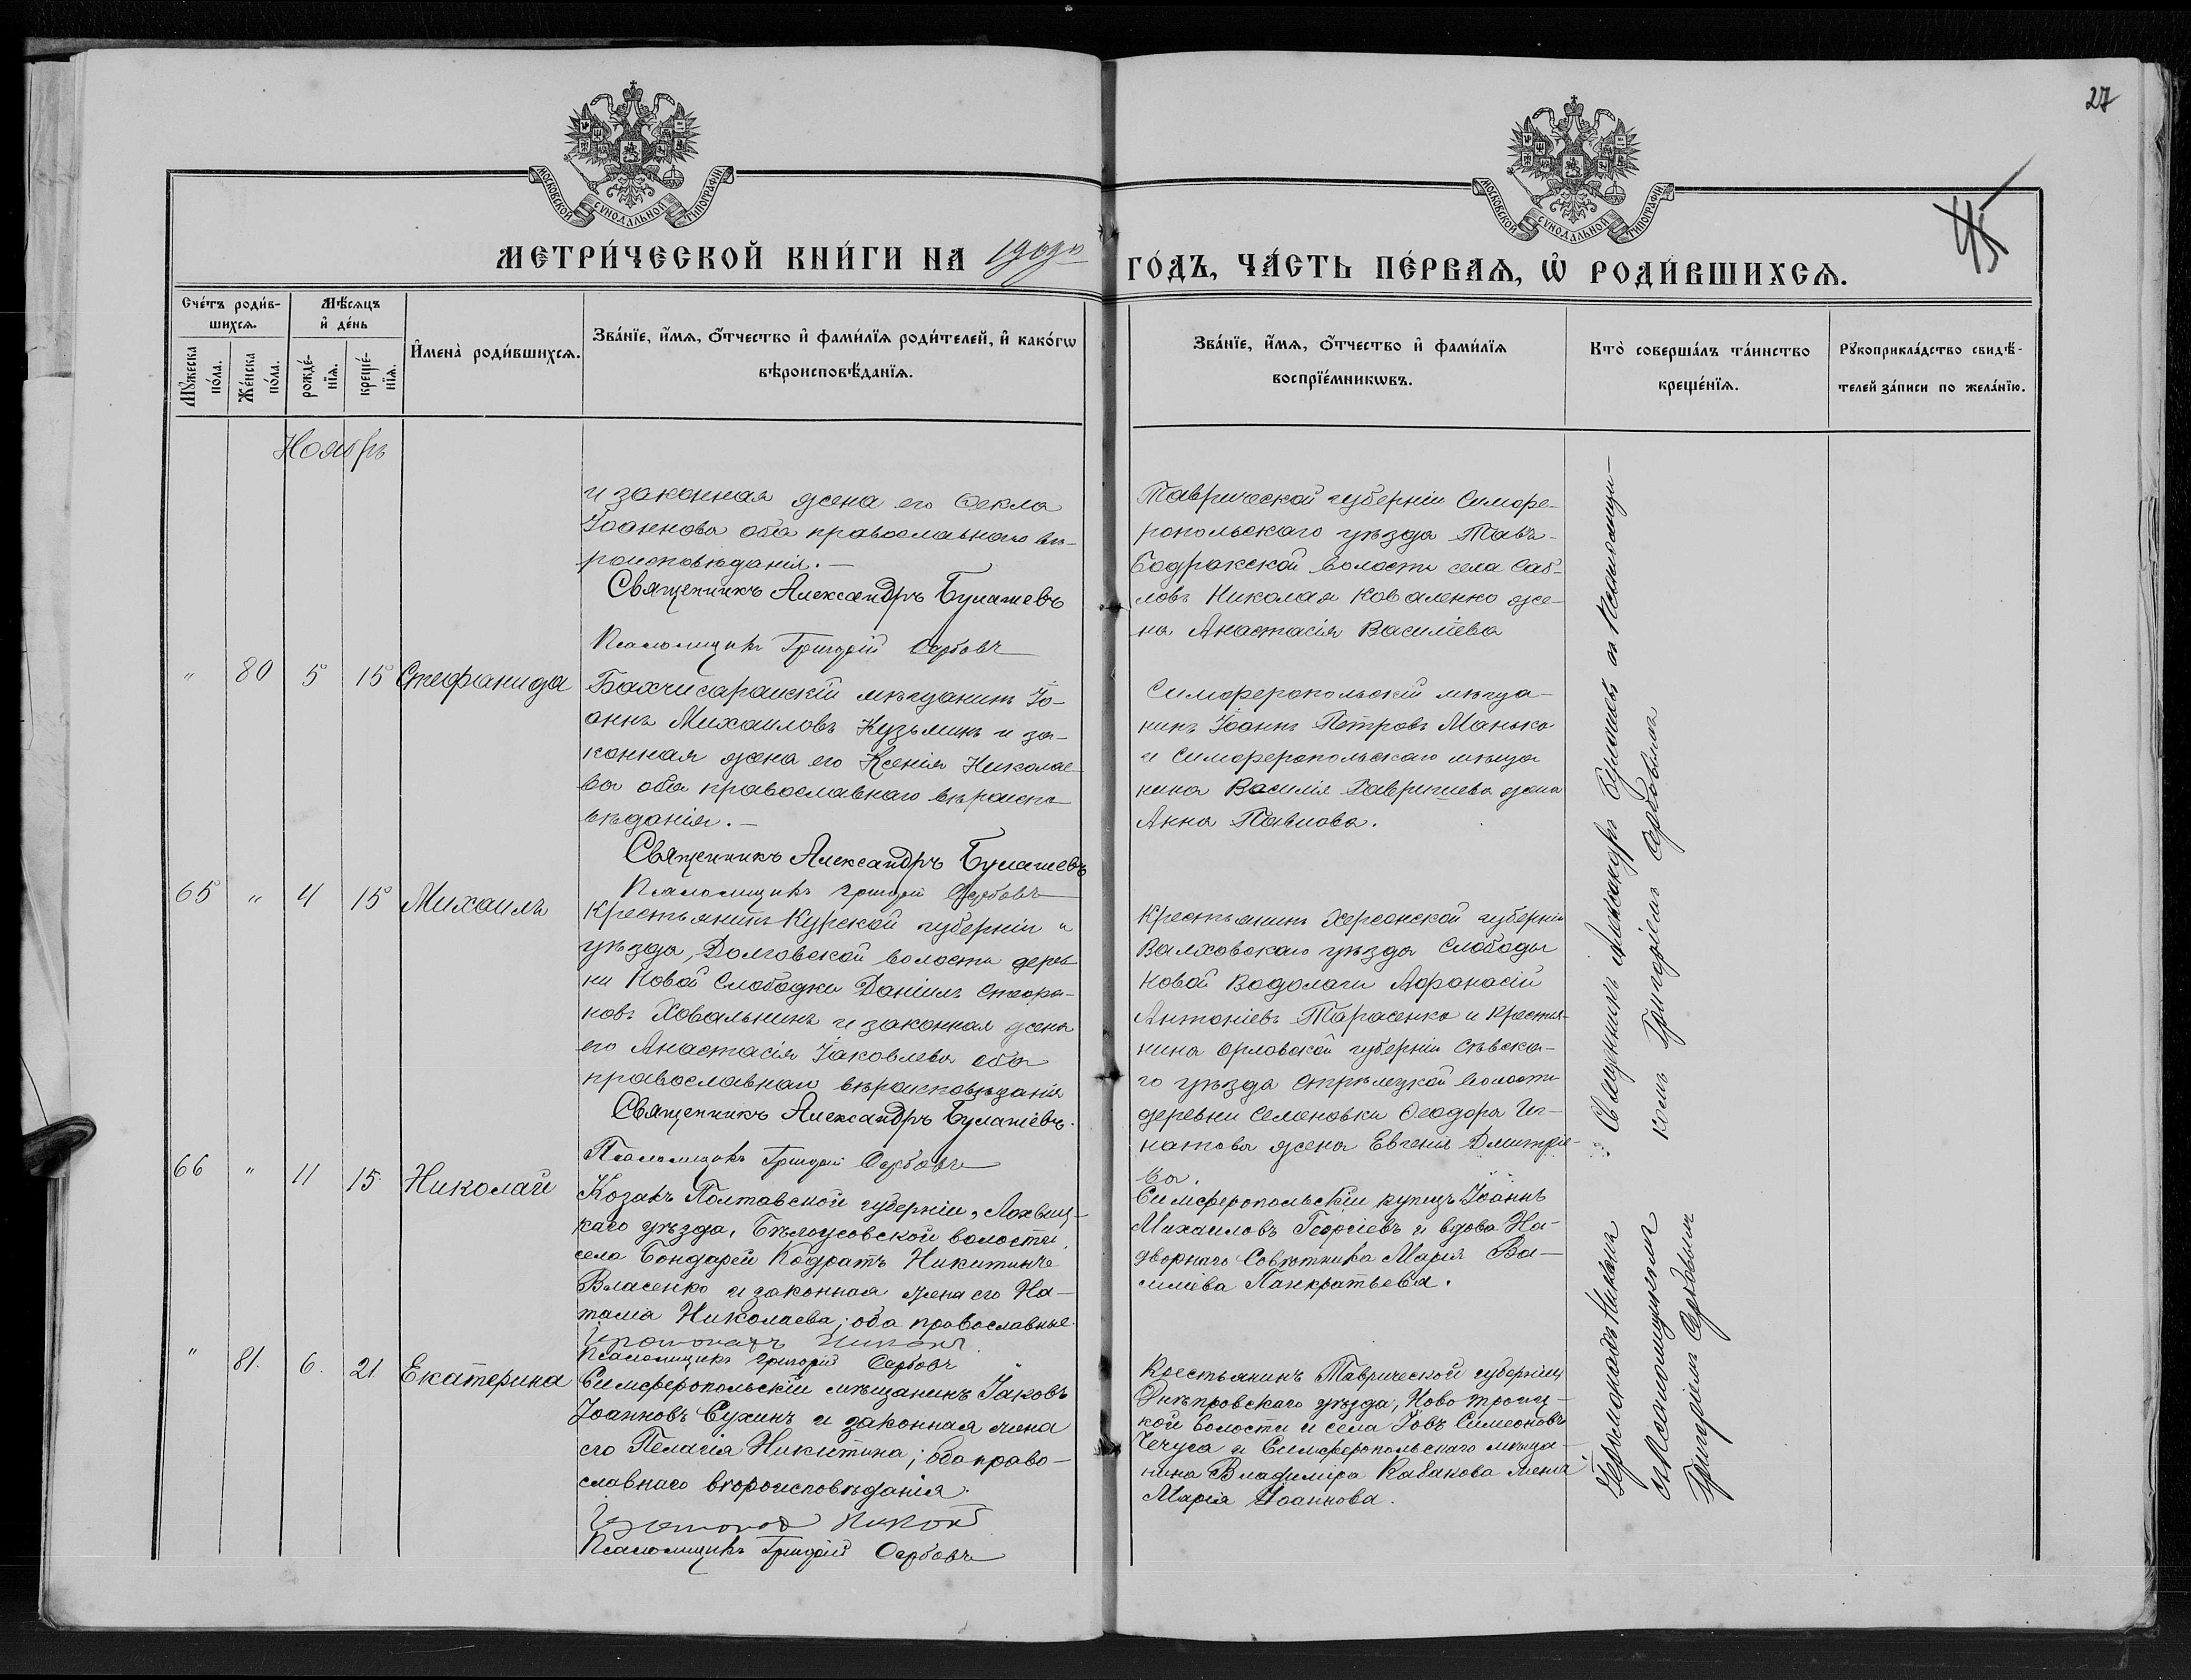 27
45
МОСКОВСКОЙ СѴНОДАЛЬНОЙ ТИПОГРАФІИ
МОСКОВСКОЙ СѴНОДАЛЬНОЙ ТИПОГРАФІИ
МЕТРИ́ЧЕСКОЙ КНИ́ГИ НА 1909й ГО́ДЪ, ЧА́СТЬ ПЕ́РВАѦ, Ѡ҆ РОДИ́ВШИХСѦ.
Сче́тъ роди́в-
шихсѧ.
Мѣ́сѧцъ
и҆ де́нь
Мꙋ́жеска
по́ла.
Же́нска
по́ла.
рожде́-
нїѧ.
креще́-
нїѧ.
И҆мена̀ роди́вшихсѧ.
Зва́нїе, и҆́мѧ, ѻ҆́тчество и҆ фами́лїѧ роди́телей, и҆ како́гѡ
вѣроисповѣ́данїѧ.
Зва́нїе, и҆́мѧ, ѻ҆́тчество и҆ фами́лїѧ
воспрїе́мникѡвъ.
Кто̀ соверша́лъ та́инство
креще́нїѧ.
Рꙋкоприкла́дство свидѣ́-
телей за́писи по жела́нїю.
Ноябрь
и законная жена его Ѳекла
Іоаннова оба православнаго вѣ-
роисповѣданія.—
Священникъ Александръ Булашевъ
Псаломщикъ Григорій Сербовъ
Таврической губерніи Симфе-
ропольскаго уѣзда Тавъ-
Бодракской волости села Саб-
ловъ Николая Коваленко же-
на Анастасія Василіева
" 80 5 15 Стефанида
Бахчисарайскій мѣщанинъ Іо-
аннъ Михаиловъ Кузьминъ и за-
конная жена его Ксенія Николае-
ва оба православнаго вѣроиспо
вѣданія.—
Священникъ Александръ Булашевъ
Псаломщикъ Григорій Сербовъ
Симферопольскій мѣща-
нинъ Іоаннъ Петровъ Манько
и Симферопольскаго мѣща
нина Василія жена
Анна Павлова.
65 " 4 15 Михаилъ
Крестьянинъ Курской губерніи "
уѣзда, Долговской волости дерев-
ни Новой Слободки Даніилъ Стефа-
новъ Ховальнинъ и законная жена
его Анастасія Іаковлева оба
православнаго вѣроисповѣданія
Священникъ Александръ Булашевъ.
Псаломщикъ Григорій Сербовъ
Крестьянинъ Херсонской губерніи
Валховскаго уѣзда Слободы
Новой Водолаги Афанасій
Антоніевъ Тарасенко и крестья-
нина Орловской губерніи Сѣвска-
го уѣзда Стрѣлецкой волости
деревни Семеновки Ѳеодора Иг-
натова жена Евгенія Дмитріе-
ва.
66 " 11 15 Николай
Козакъ Полтавской губерніи, Лохвиц-
каго уѣзда, Бѣлоусовской волости,
села Бондарей Кодратъ Никитинъ
Власенко и законная жена его На-
талія Николаева; оба православные.
Іеромонахъ Никонъ
Псаломщикъ Григорій Сербовъ
Симферопольскій купецъ Іоаннъ
Михаиловъ Георгіевъ и вдова На-
дворнаго Совѣтника Марія Ва-
силіева Панкратьева.
" 81. 6. 21 Екатерина
Симферопольскій мѣщанинъ Іаковъ
Іоанновъ Сухинъ и законная жена
его Пелагія Никитина; оба право-
славнаго вѣроисповѣданія.
Іеромонахъ Никонъ
Псаломщикъ Григорій Сербовъ
Крестьянинъ Таврической губерніи
Днѣпровскаго уѣзда, Ново Троиц-
кой волости и села Іовъ Симеоновъ
Чечуга и Симферопольскаго мѣща-
нина Владиміра Кабакова жена
Марія Іоаннова.
Священникъ Александръ Булашевъ съ Псаломщи-
комъ Григоріемъ Сербовымъ
Іеромонахъ Никонъ
съ Псаломщикомъ
Григоріемъ Сербовымъ